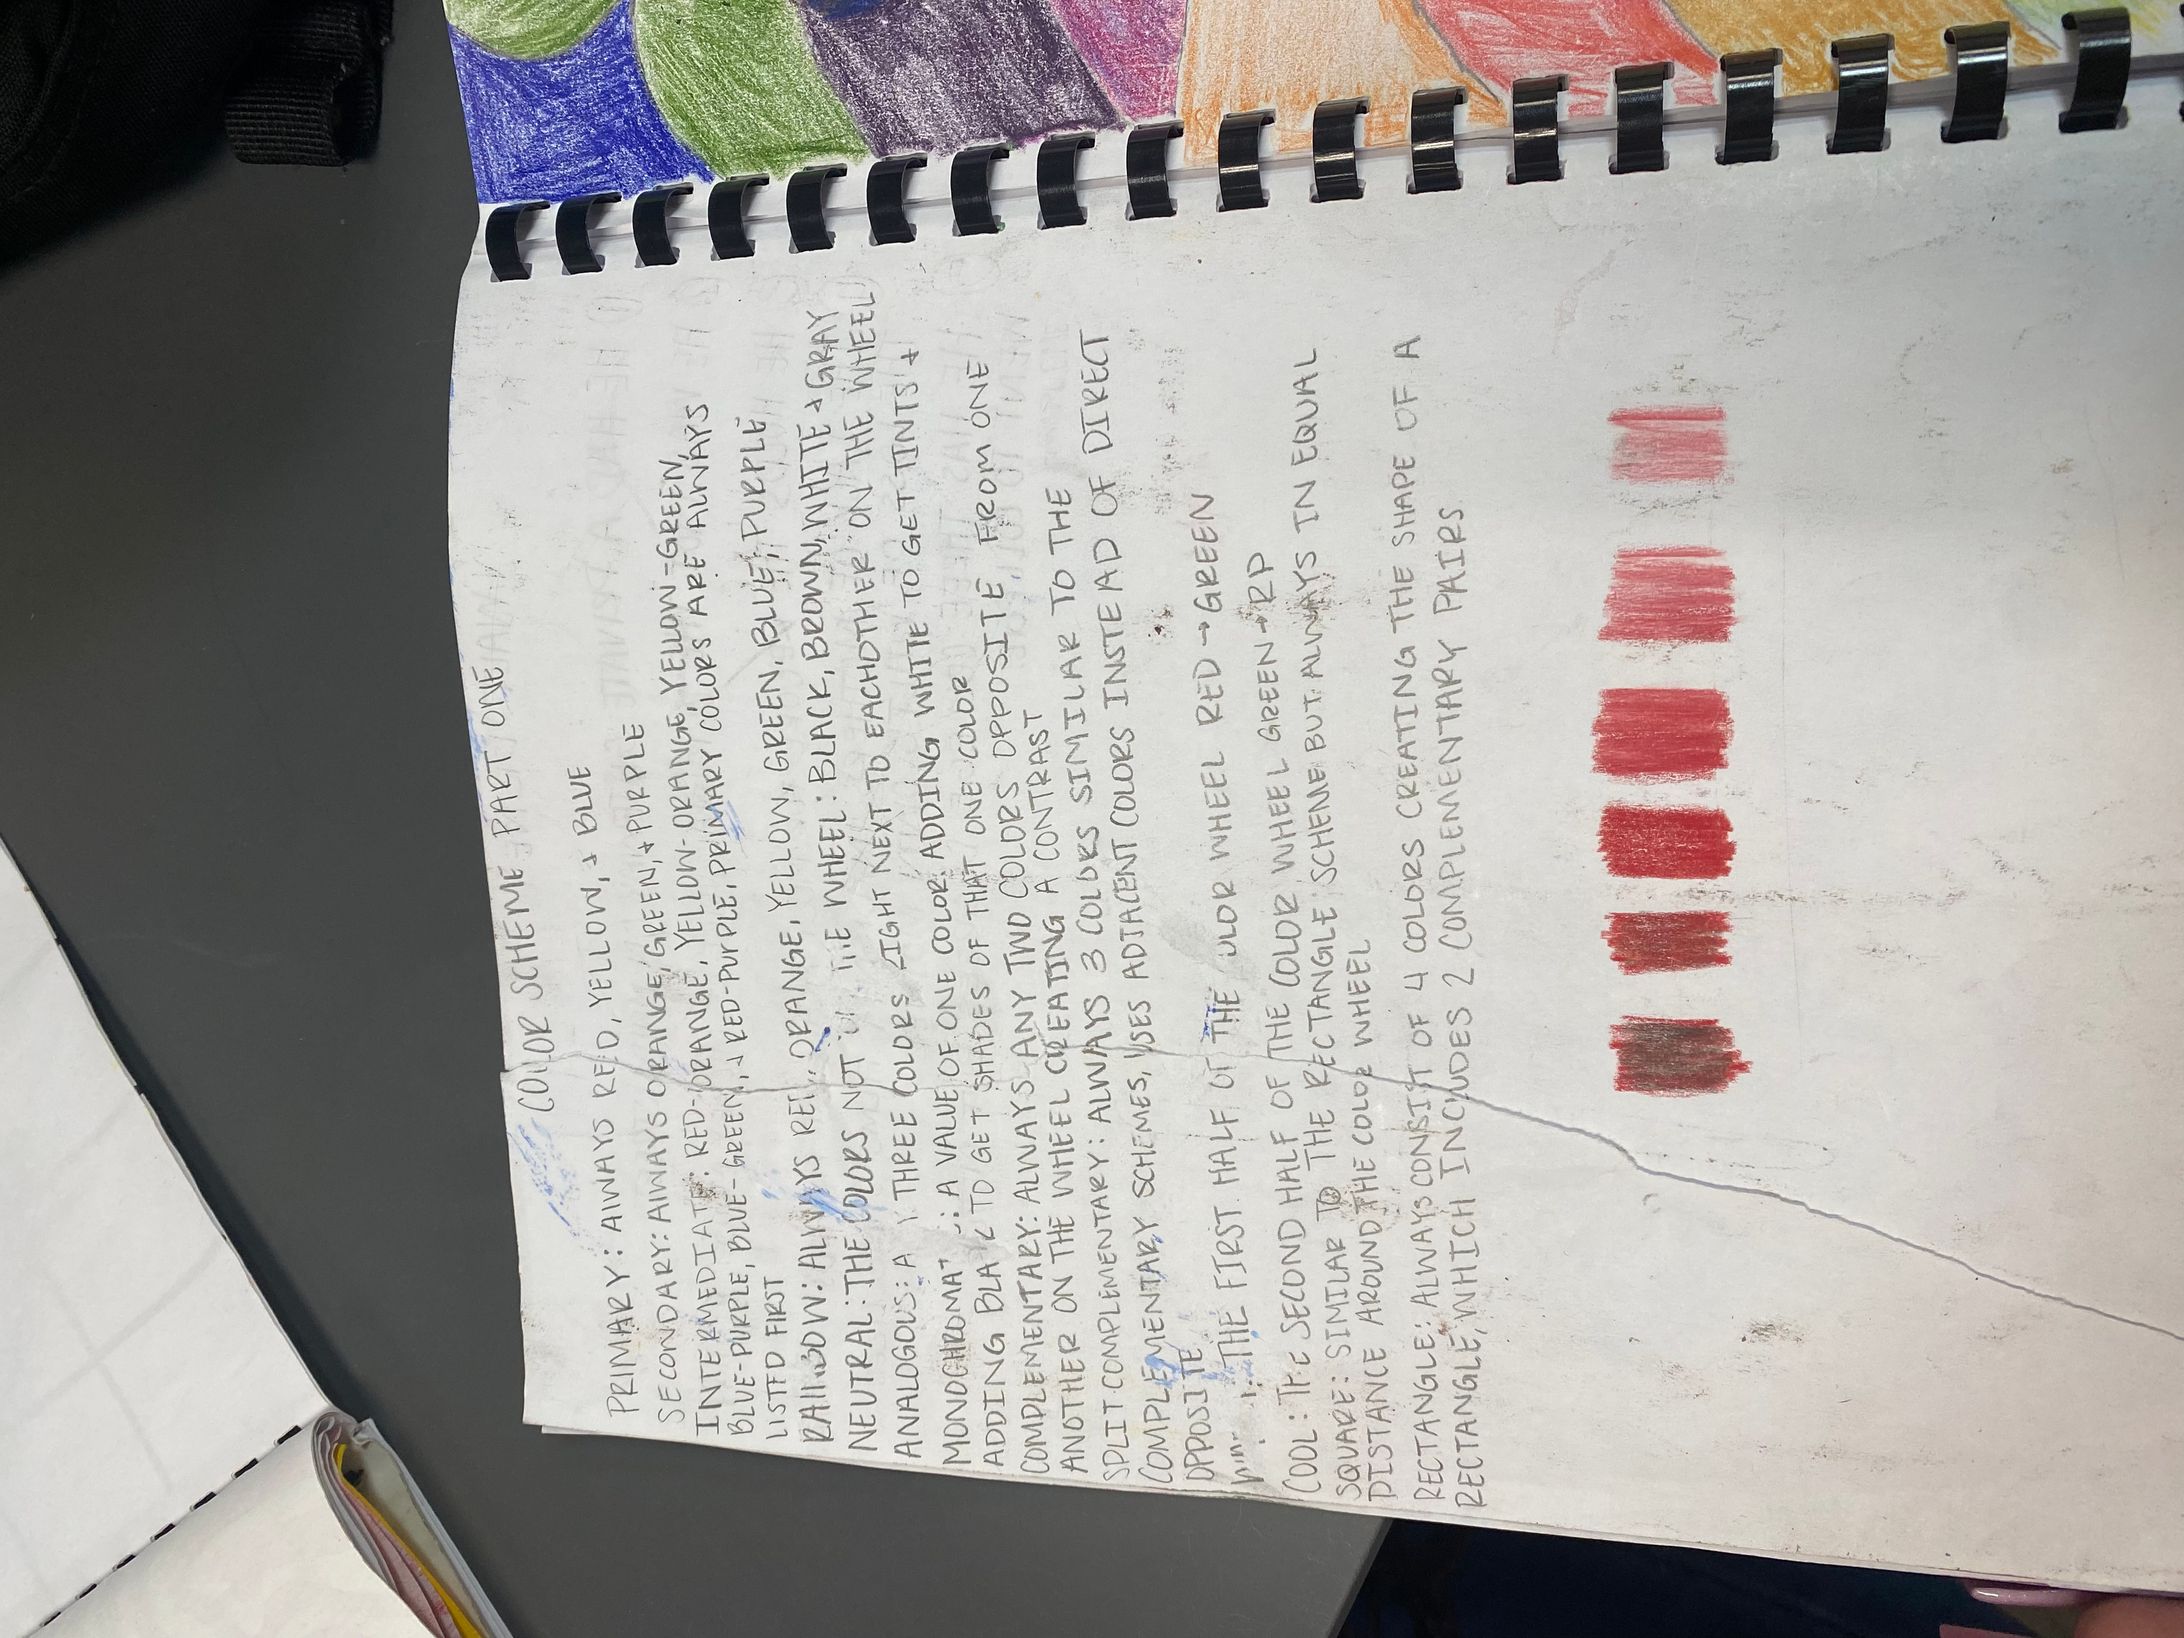 COLOR SCHEME PART ONE
PRIMARY: ALWAYS RED, YELLOW, + BLUE
SECONDARY: ALWAYS ORANGE, GREEN, + PURPLE
INTERMEDIATE: RED-ORANGE, YELLOW-ORANGE, YELLOW-GREEN,
BLUE-PURPLE, BLUE-GREEN, + RED-PURPLE, PRIMARY COLORS ARE ALWAYS
LISTED FIRST
RAINBOW: ALWAYS RED, ORANGE, YELLOW, GREEN, BLUE, PURPLE
NEUTRAL: THE COLORS NOT WHEEL: BLACK, BROWN, WHITE + GRAY
ANALOGOUS: THREE COLORS RIGHT NEXT TO EACHOTHER ON THE WHEEL
A VALUE OF ONE COLOR. ADDING WHITE TO GET TINTS +
ADDING BLACK TO GET SHADES OF THAT ONE COLOR
COMPLEMENTARY: ALWAYS ANY TWO COLORS OPPOSITE FROM ONE
ANOTHER ON THE WHEEL CREATING A CONTRAST
SPLIT COMPLEMENTARY: ALWAYS 3 COLORS SIMILAR TO THE
COMPLEMENTARY SCHEMES, USES ADJACENT COLORS INSTEAD OF DIRECT
OPPOSITE
THE FIRST HALF OF THE COLOR WHEEL RED → GREEN
COOL: THE SECOND HALF OF THE COLOR WHEEL GREEN → RP
SQUARE: SIMILAR TO THE RECTANGLE SCHEME BUT ALWAYS IN EQUAL
DISTANCE AROUND THE COLOR WHEEL
RECTANGLE: ALWAYS CONSIST OF 4 COLORS CREATING THE SHAPE OF A
RECTANGLE, WHICH INCLUDES 2 COMPLEMENTARY PAIRS